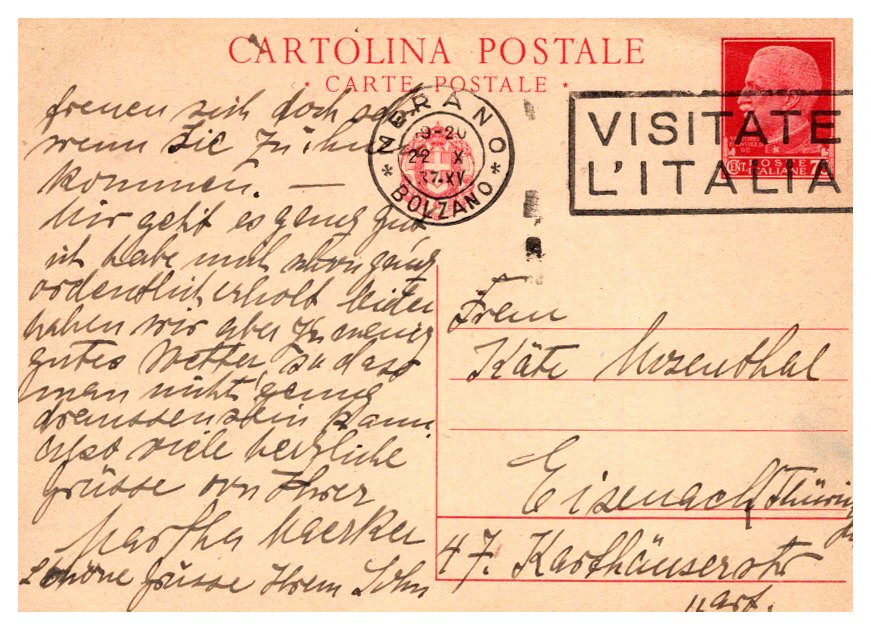 CARTOLINA POSTALE
* CARTE POSTALE *
freuen sich doch sehr
wenn Sie zu ihnen
kommen. —
Mir geht es ganz gut
ich habe mich schon ganz
ordentlich erholt leider
haben wir aber zu wenig
gutes Wetter, so dass
man nicht genug
draussen sein kann.
Also viele herzliche
Grüsse von Ihrer
Martha
Schöne Grüsse Ihrem Sohn
MERANO
22 X
37.XV
* BOLZANO *
VISITATE
L'ITALIA
CENT. POSTE 75
ITALIANE
Frau
Käte Mosenthal
Eisenach
47. Karthäuserstr
part.